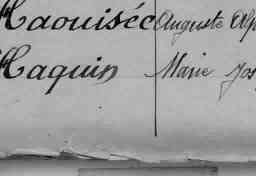 Haouisée Auguste Alp
Haquin Marie Jos